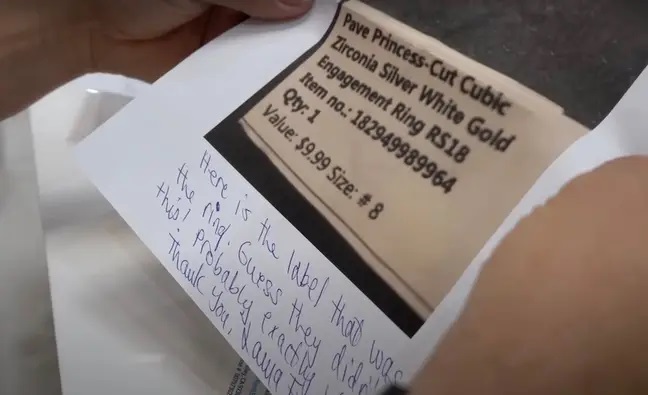 Pave Princess-Cut Cubic
Zirconia Silver White Gold
Engagement Ring RS18
Item no.: 182949989964
Qty: 1
Value: $9.99 Size: # 8
Here is the label that was
the ring. Guess they didn't
this! probably exactly
Thank you,